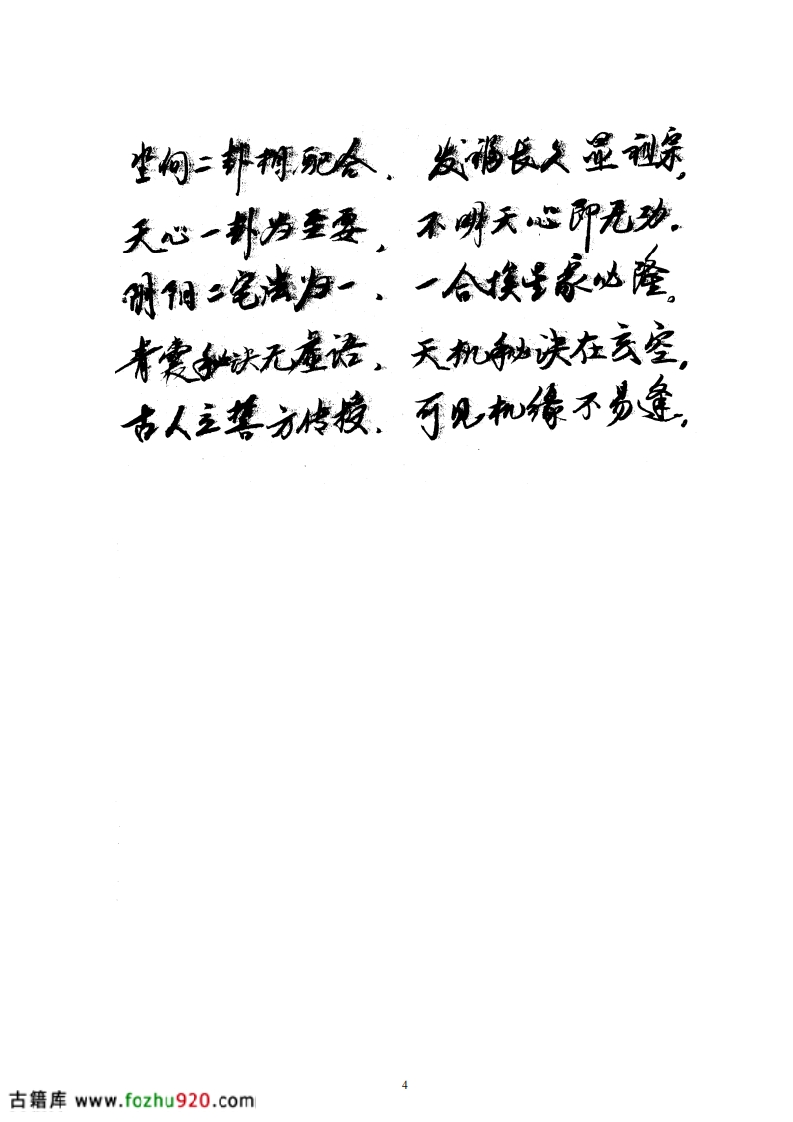 坐向二卦相配合、发福长久显祖宗,
天心一卦为至要,不明天心即无功.
阴阳二宅法为一、一合挨星家必隆。
青霞秘诀无虚语、天机秘诀在玄空,
古人立誓方传授.可见机缘不易逢,
4
古籍库 www.fozhu920.com